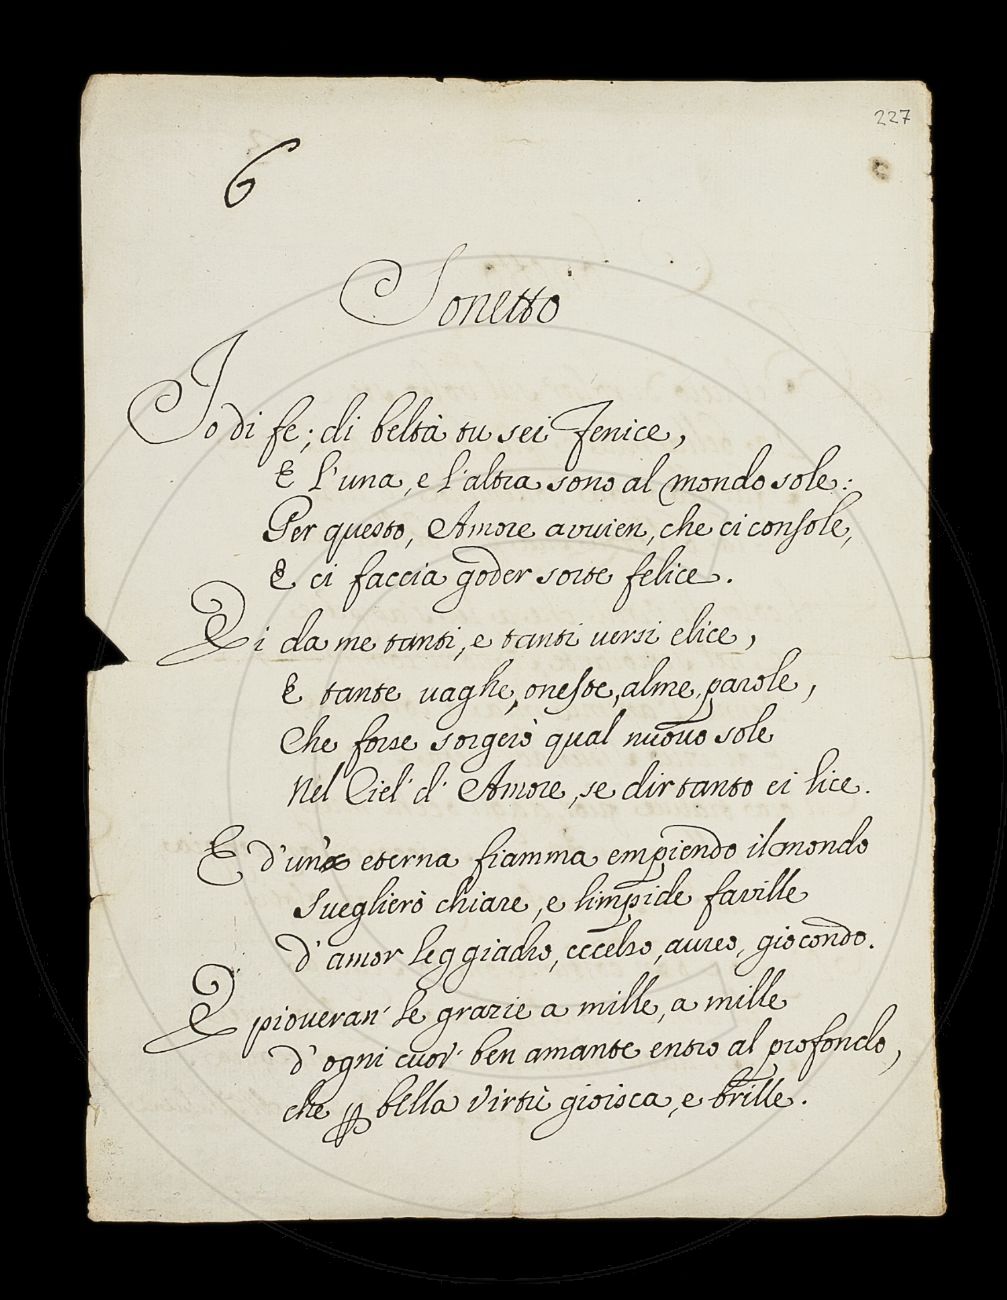 227
6
Sonetto
Io di fe; di beltà tu sei Fenice,
E l'una, e l'altra sono al mondo sole:
Per questo, Amore avvien, che ci console,
E ci faccia goder sorte felice.
Ei da me tanti, e tanti versi elice,
E tante vaghe, oneste, alme, parole,
Che forse sorgerò qual nuovo sole
Nel Ciel' d' Amore, se dir tanto ei lice.
E d'una eterna fiamma empiendo il mondo
Sveglierò chiare, e limpide faville
D' amor leggiadro, eccelso, aureo, giocondo.
E pioveran' le grazie a mille, a mille
D' ogni cuor' ben amante entro al profondo,
che ꝑ bella virtù gioisca, e brille.